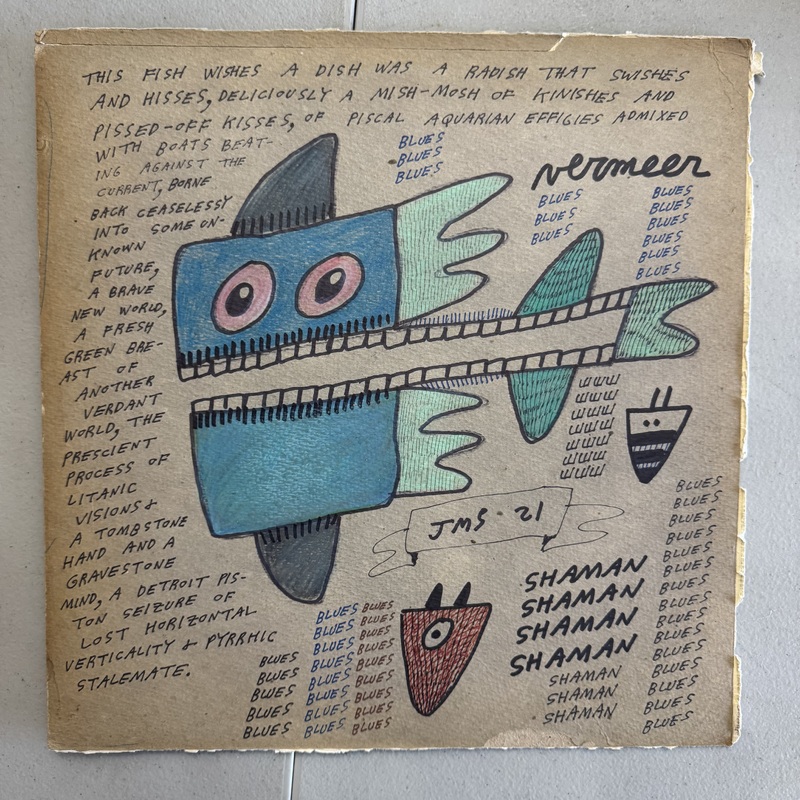 THIS FISH WISHES A DISH WAS A RADISH THAT SWISHES
AND HISSES, DELICIOUSLY A MISH-MOSH OF KINISHES AND
PISSED-OFF KISSES, OF PISCAL AQUARIAN EFFIGIES ADMIXED
WITH BOATS BEAT-
ING AGAINST THE
CURRENT, BORNE
BACK CEASELESSY
INTO SOME UN-
KNOWN
FUTURE,
A BRAVE
NEW WORLD,
A FRESH
GREEN BRE-
AST OF
ANOTHER
VERDANT
WORLD, THE
PRESCIENT
PROCESS OF
LITANIC
VISIONS &
A TOMBSTONE
HAND AND A
GRAVESTONE
MIND, A DETROIT PIS-
TON SEIZURE OF
LOST HORIZONTAL
VERTICALITY & PYRRHIC
STALEMATE.
BLUES
BLUES
BLUES
vermeer
BLUES
BLUES
BLUES
BLUES
BLUES
BLUES
BLUES
BLUES
BLUES
JMS · 21
SHAMAN
SHAMAN
SHAMAN
SHAMAN
SHAMAN
SHAMAN
SHAMAN
BLUES
BLUES
BLUES
BLUES
BLUES
BLUES
BLUES
BLUES
BLUES
BLUES
BLUES
BLUES
BLUES
BLUES
BLUES BLUES
BLUES BLUES
BLUES BLUES
BLUES BLUES BLUES
BLUES BLUES BLUES
BLUES BLUES BLUES
BLUES BLUES BLUES
BLUES BLUES BLUES
BLUES